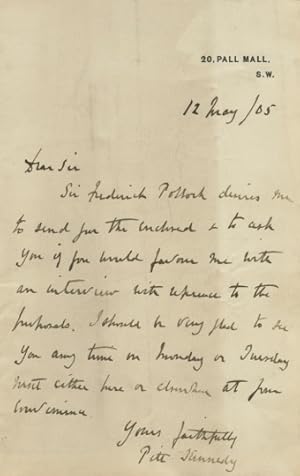 20, PALL MALL,
S.W.
12 May/05
Dear Sir
Sir Frederick Pollock desires me
to send you the enclosed & to ask
you if you would favour me with
an interview with reference to the
proposals. I should be very glad to see
you any time on Monday or Tuesday
next either here or elsewhere at your
convenience.
Yours faithfully
Pitt Kennedy